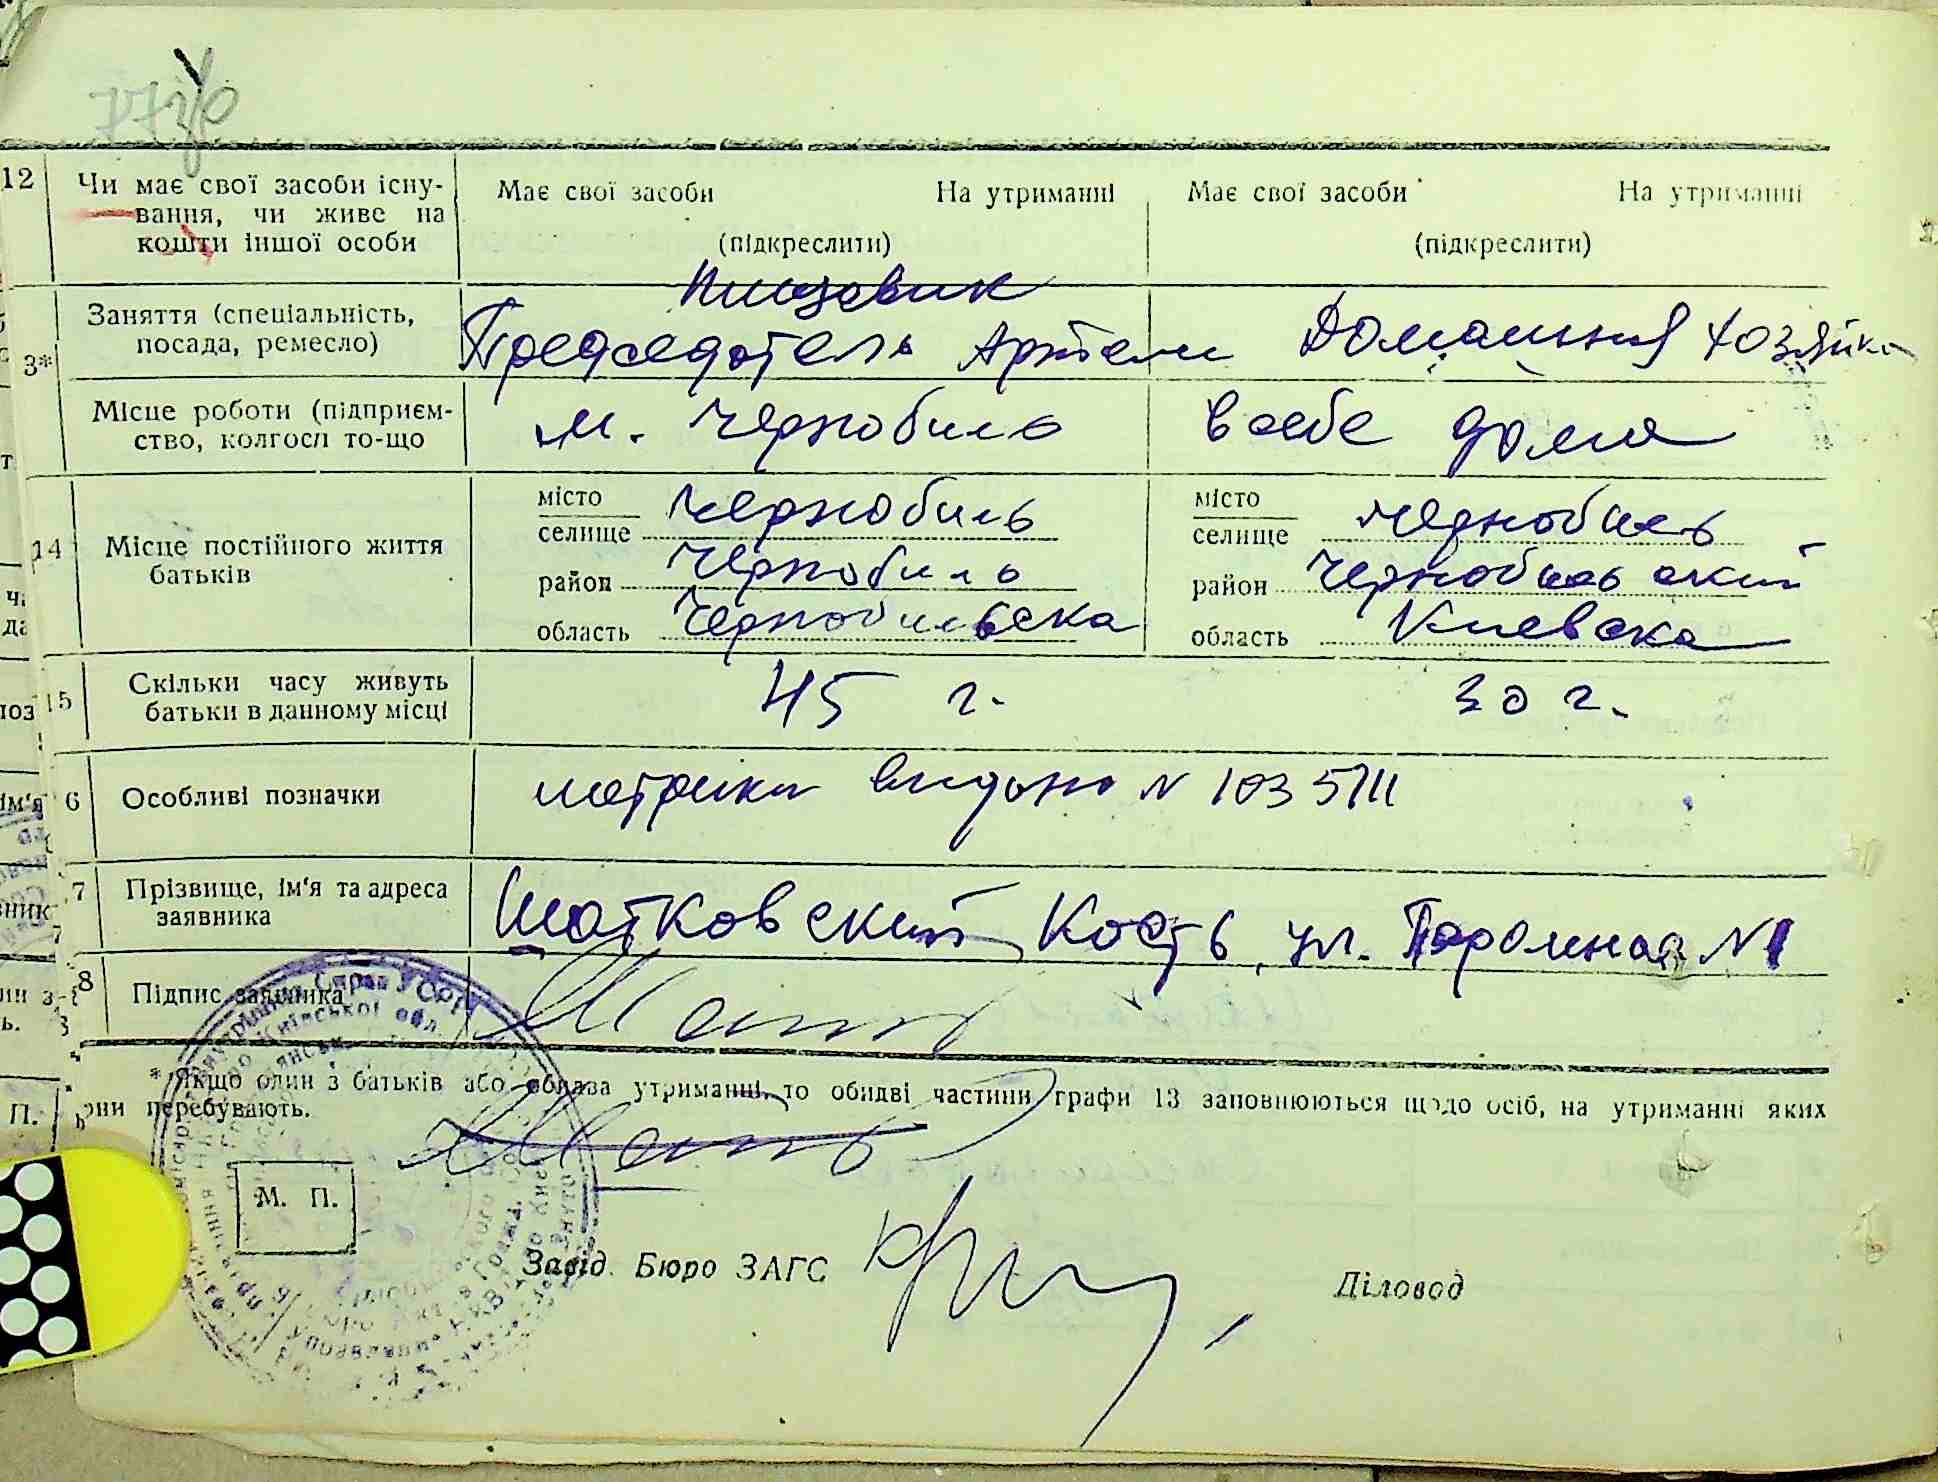 12 Чи має свої засоби існу-
вання, чи живе на
кошти іншої особи
Має свої засоби На утриманні
(підкреслити)
Має свої засоби На утриманні
(підкреслити)
3* Заняття (спеціальність,
посада, ремесло)
Пищевик
Председатель Артели
Домашняя хозяйка
Місце роботи (підприєм-
ство, колгосп то-що
м. Чернобиль
в себе дома
14 Місце постійного життя
батьків
місто
селище Чернобиль
район Чернобиль
область Чернобильска
місто
селище Чернобиль
район Чернобильский
область Киевска
15 Скільки часу живуть
батьки в данному місці
45 г.
30 г.
6 Особливі позначки
метрики видано N
7 Прізвище, ім'я та адреса
заявника
Шатковский Кость, ул. N 1
8 Підпис заявника
* Якщо один з батьків або обидва утриманні, то обидві частини графи 13 заповнюються щодо осіб, на утриманні яких
вони перебувають.
М. П.
Завід. Бюро ЗАГС
Діловод